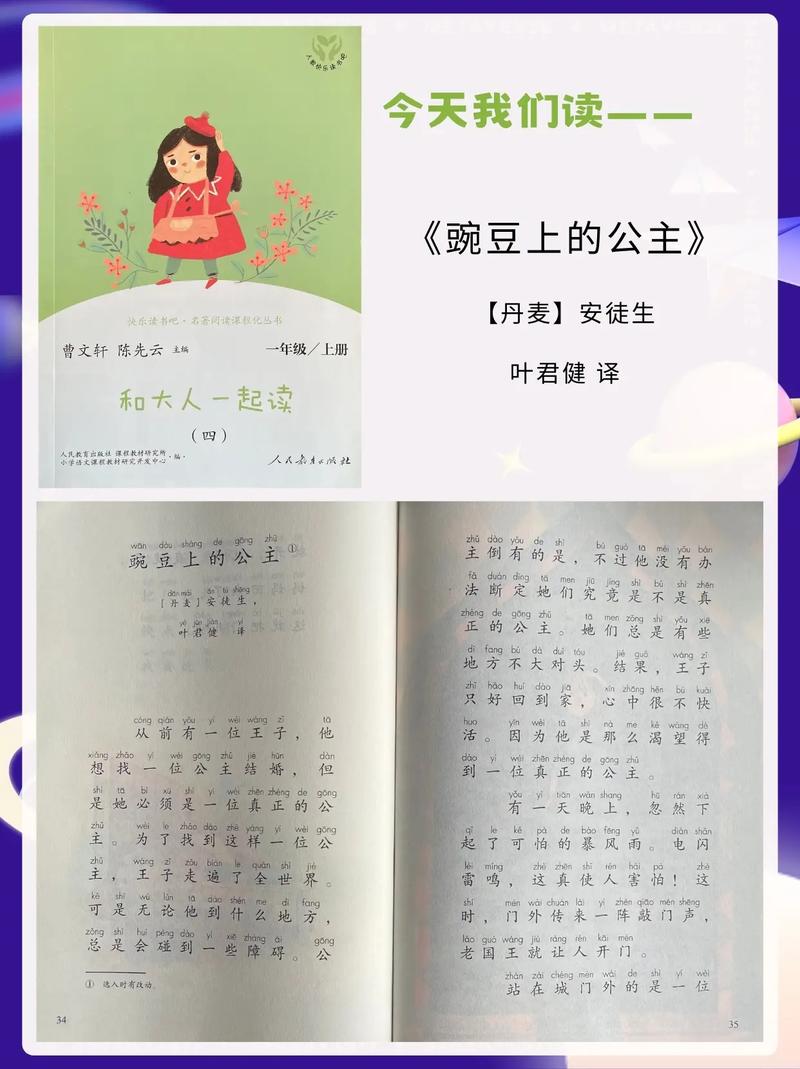 人教快乐读书吧
今天我们读——
《豌豆上的公主》
【丹麦】安徒生
叶君健 译
快乐读书吧·名著阅读课程化丛书
曹文轩 陈先云 主编
一年级/上册
和大人一起读
(四)
人民教育出版社 课程教材研究所
小学语文课程教材研究开发中心 ·编·
人民教育出版社
wān dòu shàng de gōng zhǔ
豌豆上的公主①
dān mài ān tú shēng
[丹麦]安徒生,
yè jūn jiàn yì
叶君健 译
cóng qián yǒu yí wèi wáng zǐ tā
从前有一位王子,他
xiǎng zhǎo yí wèi gōng zhǔ jié hūn dàn
想找一位公主结婚,但
shì tā bì xū shì yí wèi zhēn zhèng de gōng
是她必须是一位真正的公
zhǔ wèi le zhǎo dào zhè yàng yí wèi gōng
主。为了找到这样一位公
zhǔ wáng zǐ zǒu biàn le quán shì jiè
主,王子走遍了全世界。
kě shì wú lùn tā dào shén me dì fang
可是无论他到什么地方,
zǒng shì huì pèng dào yì xiē zhàng ài gōng
总是会碰到一些障碍。公
① 选入时有改动。
34
zhǔ dào yǒu de shì bú guò tā méi yǒu bàn
主倒有的是,不过他没有办
fǎ duàn dìng tā men jiū jìng shì bú shì zhēn
法断定她们究竟是不是真
zhèng de gōng zhǔ tā men zǒng shì yǒu xiē
正的公主。她们总是有些
dì fang bú dà duì tóu jié guǒ wáng zǐ
地方不大对头。结果,王子
zhǐ hǎo huí dào jiā xīn zhōng hěn bú kuài
只好回到家,心中很不快
huo yīn wèi tā shì nà me kě wàng dé
活。因为他是那么渴望得
dào yí wèi zhēn zhèng de gōng zhǔ
到一位真正的公主。
yǒu yì tiān wǎn shang hū rán xià
有一天晚上,忽然下
qǐ le kě pà de bào fēng yǔ diàn shǎn
起了可怕的暴风雨。电闪
léi míng zhè zhēn shǐ rén hài pà zhè
雷鸣,这真使人害怕!这
shí mén wài chuán lái yí zhèn qiāo mén shēng
时,门外传来一阵敲门声,
lǎo guó wáng jiù ràng rén kāi mén
老国王就让人开门。
zhàn zài chéng mén wài de shì yí wèi
站在城门外的是一位
35